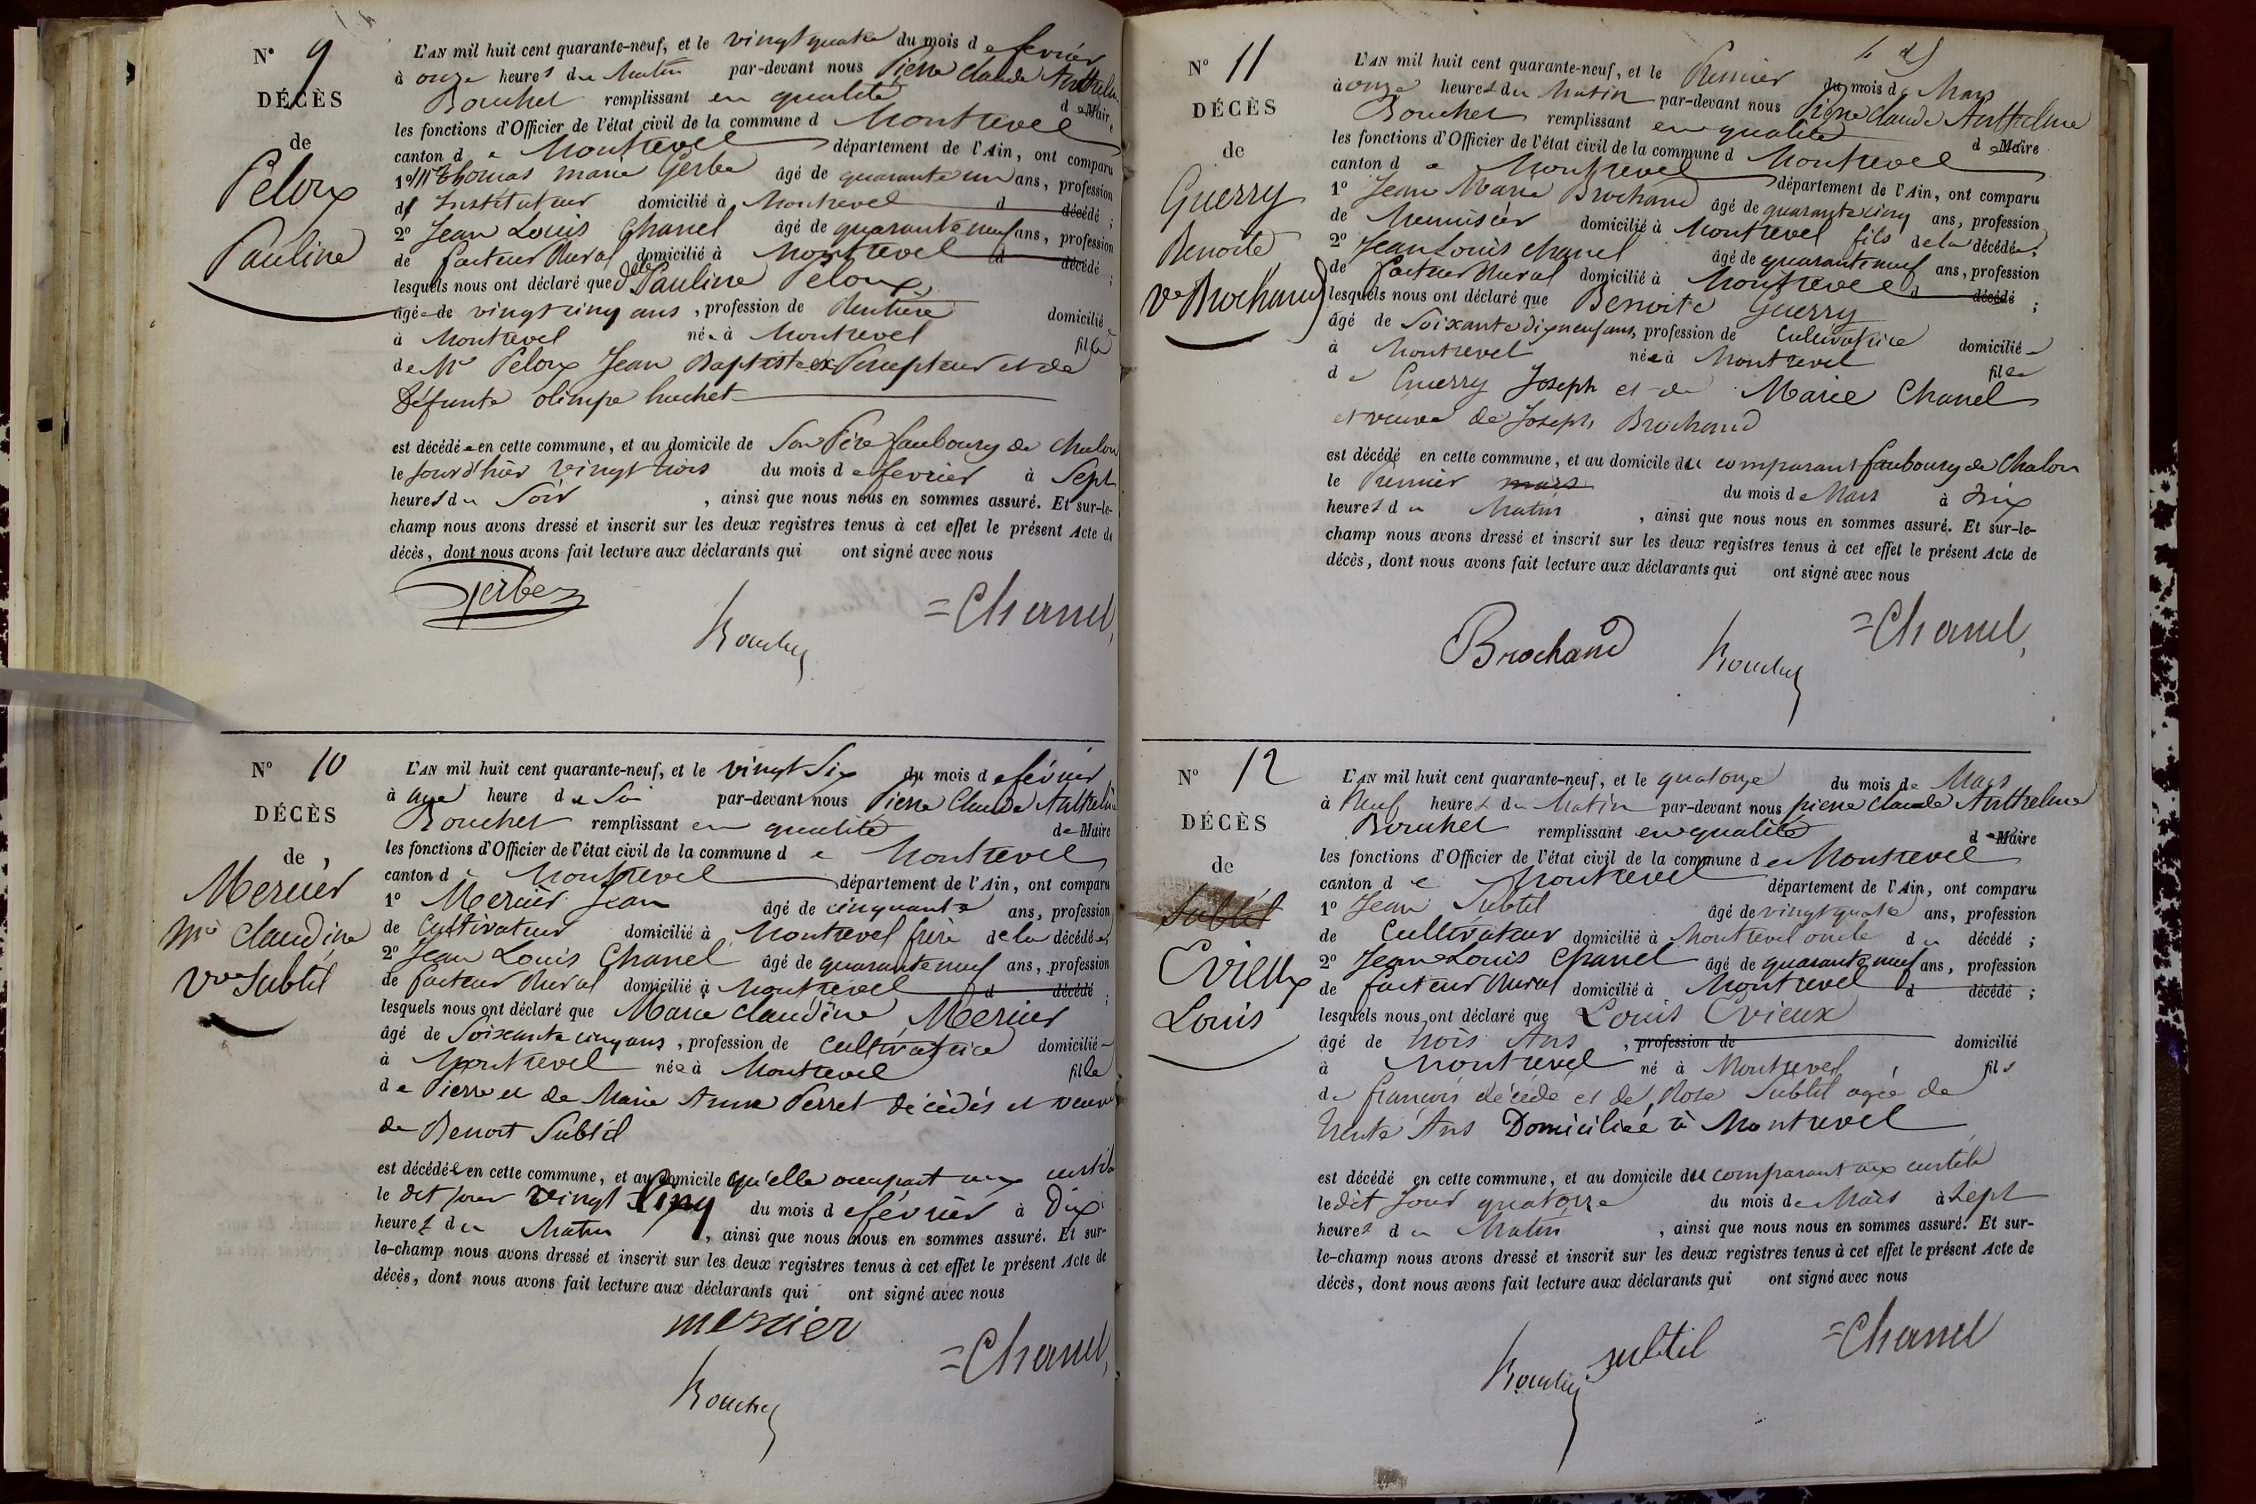 N° 9
DÉCÈS
de
Péloux
Pauline
L'AN mil huit cent quarante-neuf, et le vingt quatre du mois de février
à onze heures du Matin par-devant nous Pierre Claude Anthelme
Bouchet remplissant en qualité de Maire
les fonctions d'Officier de l'état civil de la commune d Montrevel
canton de Montrevel département de l'Ain, ont comparu
1° Mr Thomas marie Gerbe âgé de quarante un ans, profession
d' Instituteur domicilié à Montrevel d décédé ;
2° Jean Louis Chanel âgé de quarante neuf ans, profession
de facteur Rural domicilié à Montrevel d décédé ;
lesquels nous ont déclaré que dlle Pauline Péloux
âgée de vingt cinq ans, profession de Rentière domicilié
à Montrevel née à Montrevel fille
de Mr Péloux Jean Baptiste ex Percepteur et de
défunte olimpe huchet
est décédée en cette commune, et au domicile de Son Père faubourg de Chalon
le jour d'hier vingt trois du mois de février à Sept
heures du Soir, ainsi que nous nous en sommes assuré. Et sur-le-
champ nous avons dressé et inscrit sur les deux registres tenus à cet effet le présent Acte de
décès, dont nous avons fait lecture aux déclarants qui ont signé avec nous
Gerbe
Bouchet
=Chanel,
N° 10
DÉCÈS
de
Mercier
Mie Claudine
Vve Subtil
L'AN mil huit cent quarante-neuf, et le vingt Six du mois de février
à une heure du Soir par-devant nous Pierre Claude Anthelme
Bouchet remplissant en qualité de Maire
les fonctions d'Officier de l'état civil de la commune de Montrevel
canton d Montrevel département de l'Ain, ont comparu
1° Mercier Jean âgé de cinquante ans, profession
de Cultivateur domicilié à Montrevel frère de la décédée
2° Jean Louis Chanel âgé de quarante neuf ans, profession
de facteur Rural domicilié à Montrevel d décédé ;
lesquels nous ont déclaré que Marie Claudine Mercier
âgé de Soixante cinq ans, profession de Cultivatrice domicilié
à Montrevel née à Montrevel fille
de Pierre et de Marie Anne Perret décédés et veuve
de Benoit Subtil
est décédée en cette commune, et au domicile qu'elle occupait aux
le dit jour vingt Cinq du mois de février à Dix
heures du Matin, ainsi que nous nous en sommes assuré. Et sur-
le-champ nous avons dressé et inscrit sur les deux registres tenus à cet effet le présent Acte de
décès, dont nous avons fait lecture aux déclarants qui ont signé avec nous
mercier
Bouchet
=Chanel,
N° 11
DÉCÈS
de
Guerry
Benoite
Ve Brochand
L'AN mil huit cent quarante-neuf, et le Premier du mois de Mars
à onze heures du Matin par-devant nous Pierre Claude Anthelme
Bouchet remplissant en qualité de Maire
les fonctions d'Officier de l'état civil de la commune d Montrevel
canton de Montrevel département de l'Ain, ont comparu
1° Jean Marie Brochand âgé de quarante cinq ans, profession
de Menuisier domicilié à Montrevel fils de la décédée ;
2° Jean Louis Chanel âgé de quarante neuf ans, profession
de facteur Rural domicilié à Montrevel d décédé ;
lesquels nous ont déclaré que Benoite Guerry
âgé de Soixante dix neuf ans, profession de Cultivatrice domicilié
à Montrevel née à Montrevel fille
de Guerry Joseph et de Marie Chanel
et veuve de Joseph Brochand
est décédé en cette commune, et au domicile du comparant faubourg de Chalon
le Premier mars du mois de Mars à Dix
heures du Matin, ainsi que nous nous en sommes assuré. Et sur-le-
champ nous avons dressé et inscrit sur les deux registres tenus à cet effet le présent Acte de
décès, dont nous avons fait lecture aux déclarants qui ont signé avec nous
Brochand
Bouchet
=Chanel,
N° 12
DÉCÈS
de
Subtil
Evieux
Louis
L'AN mil huit cent quarante-neuf, et le quatorze du mois de Mars
à Neuf heures du Matin par-devant nous pierre Claude Anthelme
Bouchet remplissant en qualité de Maire
les fonctions d'Officier de l'état civil de la commune de Montrevel
canton de Montrevel département de l'Ain, ont comparu
1° Jean Subtil âgé de vingt quatre ans, profession
de Cultivateur domicilié à Montrevel oncle du décédé ;
2° Jean Louis Chanel âgé de quarante neuf ans, profession
de facteur Rural domicilié à Montrevel d décédé ;
lesquels nous ont déclaré que Louis Evieux
âgé de trois Ans, profession de domicilié
à Montrevel né à Montrevel fils
de françois décédé et de Rose Subtil agée de
trente Ans Domiciliée à Montrevel
est décédé en cette commune, et au domicile du comparant aux
le dit jour quatorze du mois de Mars à Sept
heures du Matin, ainsi que nous nous en sommes assuré. Et sur-
le-champ nous avons dressé et inscrit sur les deux registres tenus à cet effet le présent Acte de
décès, dont nous avons fait lecture aux déclarants qui ont signé avec nous
Bouchet
subtil
=Chanel